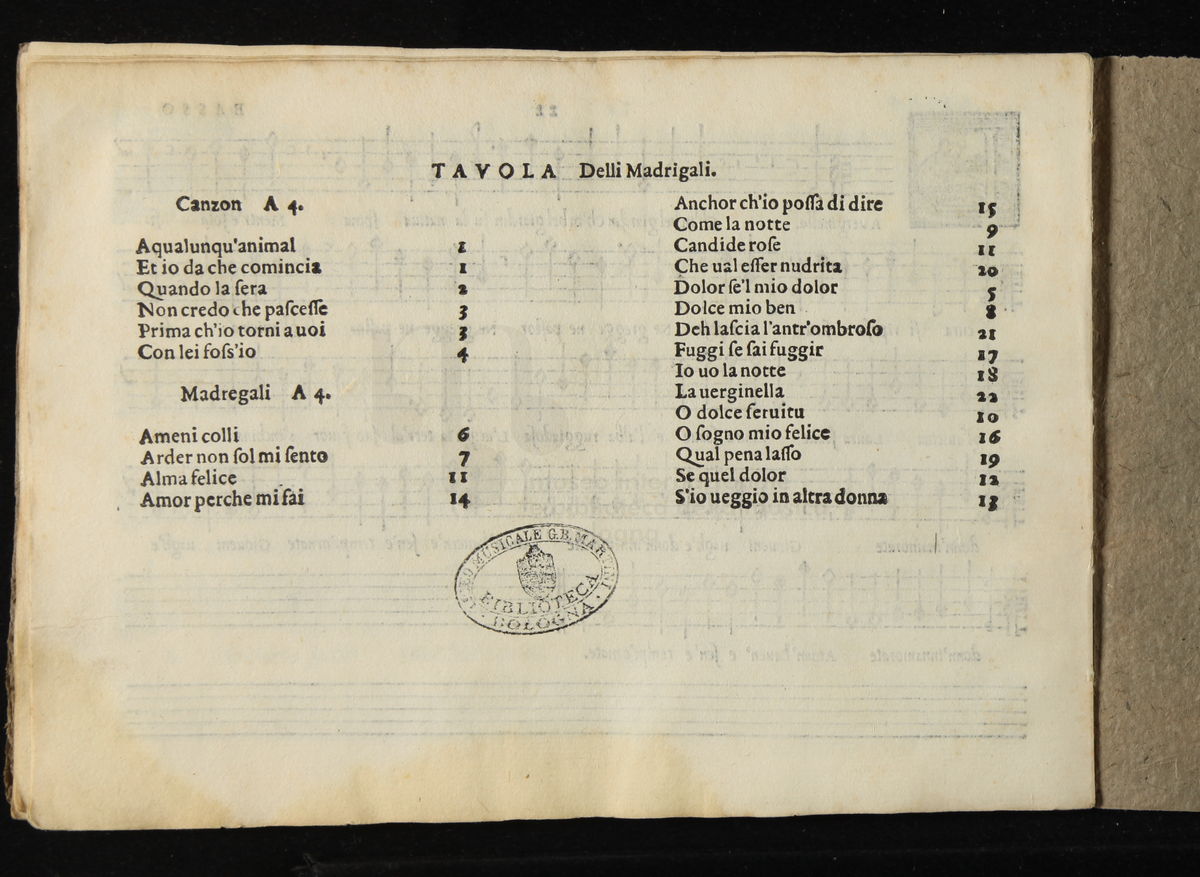 TAVOLA Delli Madrigali.
Canzon A 4.
Aqualunqu'animal 1
Et io da che comincia 1
Quando la ſera 2
Non credo che paſceſſe 3
Prima ch'io torni a uoi 3
Con lei foſs'io 4
Madregali A 4.
Ameni colli 6
Arder non ſol mi ſento 7
Alma felice 11
Amor perche mi fai 14
Anchor ch'io poſſa di dire 15
Come la notte 9
Candide roſe 11
Che ual eſſer nudrita 20
Dolor ſe'l mio dolor 5
Dolce mio ben 8
Deh laſcia l'antr'ombroſo 21
Fuggi ſe ſai fuggir 17
Io uo la notte 18
La uerginella 22
O dolce ſeruitu 10
O ſogno mio felice 16
Qual pena laſſo 19
Se quel dolor 12
S'io ueggio in altra donna 13
MUSICALE G.B. MARTINI
BIBLIOTECA
BOLOGNA